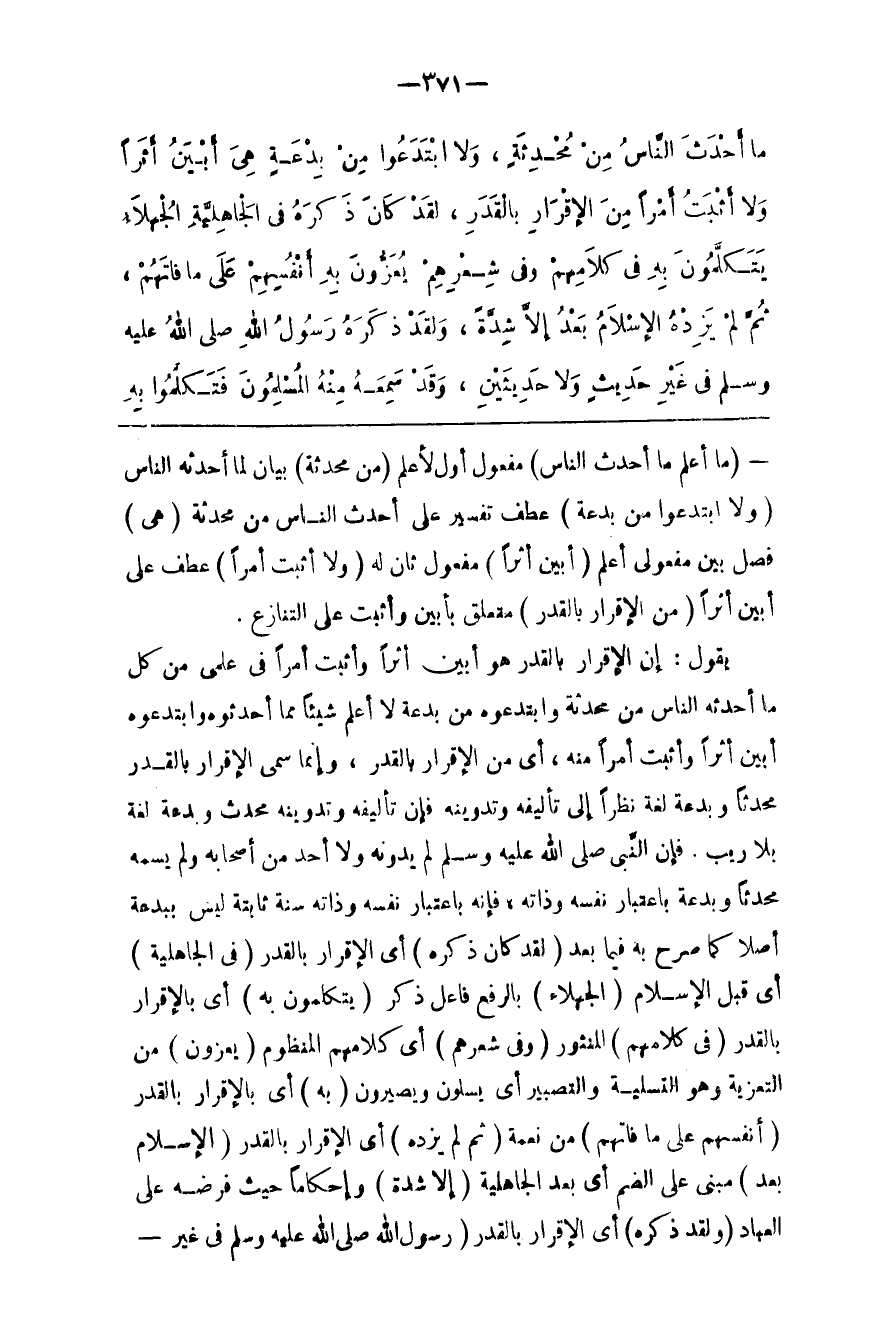 —٣٧١—
ما أَحْدَثَ النَّاسُ مِنْ مُحْـدِثَةٍ ، وَلا ابْتَدَعُوا مِنْ بِدْعَـةٍ هِىَ أَبْـيَنُ أَثَراً
وَلا أَثْبَتُ أَمْراً مِنَ الإِقْرَارِ بالْقَدَرِ ، لقَدْ كَانَ ذَكَرَهُ فى الجَاهِلِيَّةِ الجُهلاَء
يَتَـكَلَّمُونَ بِهِ فى كلاَمِهِمْ وفى شِـعْرِهِمْ يُعَزُّونَ بِهِ أَنْفُسِهِمْ عَلَى ما فاتَهُمْ ،
ثُمَّ لمْ يَزِدْهُ الإِسْلاَمُ بَعْدُ إلاَّ شِدَّةً ، وَلقَدْ ذكَرَهُ رَسُولُ اللهِ صلى اللهُ عليه
وسـلم فى غَيْرِ حَدِيثٍ وَلا حَدِيثَيْنِ ، وَقَدْ سَمِعَـهُ مِنْهُ المُسْلِمُونَ فَتَـكَلَّمُوا بِهِ
— (ما أعلم ما أحدث الناس) مفعول أول لأعلم (من محدثة) بيان لما أحدثه الناس
( ولا ابتدعوا من بدعة ) عطف تفسير على أحدث النـاس من محدثة ( هى )
فصل بين مفعولى أعلم ( أبين أثراً ) مفعول ثان له ( ولا أثبت أمراً ) عطف على
أبين أثراً ( من الإقرار بالقدر ) متعلق بأبين وأثبت على التنازع .
يقول : إن الإقرار بالقدر هو أبين أثراً وأثبت أمراً فى علمى من كل
ما أحدثه الناس من محدثة وابتدعوه من بدعة لا أعلم شيئاً مما أحدثوه وابتدعوه
أبين أثراً وأثبت أمراً منه ، أى من الإقرار بالقدر ، وإنما سمى الإقرار بالقـدر
محدثاً وبدعة لغة نظراً إلى تأليفه وتدوينه فإن تأليفه وتدوينه محدث وبدعة لغة
بلا ريب . فإن النَّبى صلى الله عليه وسـلم لم يدونه ولا أحد من أصحابه ولم يسمه
محدثاً وبدعة باعتبار نفسه وذاته ، فإنه باعتبار نفسه وذاته سنة ثابتة ليس ببدعة
أصلا كما صرح به فيما بعد ( لقد كان ذكره ) أى الإقرار بالقدر ( فى الجاهلية )
أى قبل الإسـلام ( الجهلاء ) بالرفع فاعل ذكر ( يتكلمون به ) أى بالإقرار
بالقدر ( فى كلامهم ) المنثور ( وفى شعرهم ) أى كلامهم المنظوم ( يعزون ) من
التعزية وهو التسليـة والتصبير أى يسلون ويصبرون ( به ) أى بالإقرار بالقدر
( أنفسهم على ما فاتهم ) من نعمة ( ثم لم يزده ) أى الإقرار بالقدر ( الإسـلام
بعد ) مبنى على الضم أى بعد الجاهلية ( إلا شدة ) وإحكاماً حيث فرضـه على
العباد (ولقد ذكره) أى الإقرار بالقدر ( رسول الله صلى الله عليه وسلم فى غير —